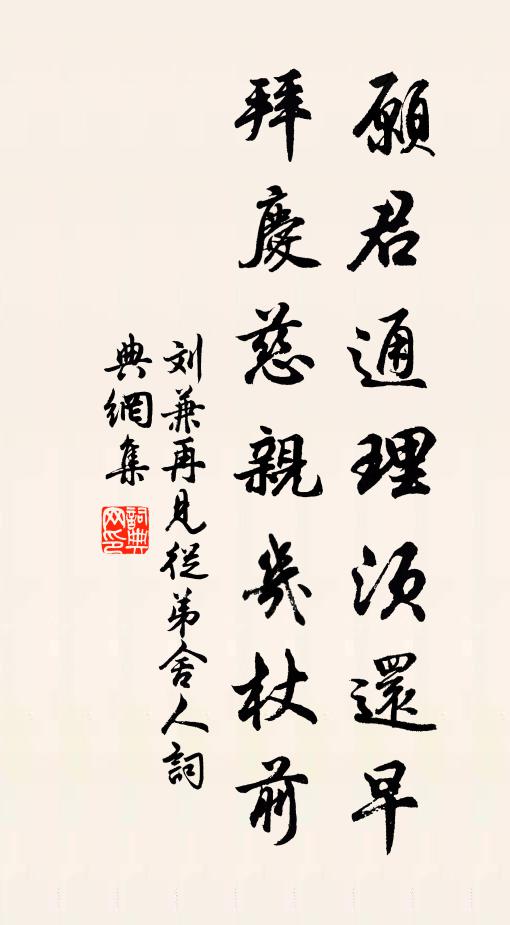 願君通理須還早
拜慶慈親几杖前
刘兼再見從弟舍人詞
典網集
詞典
网印